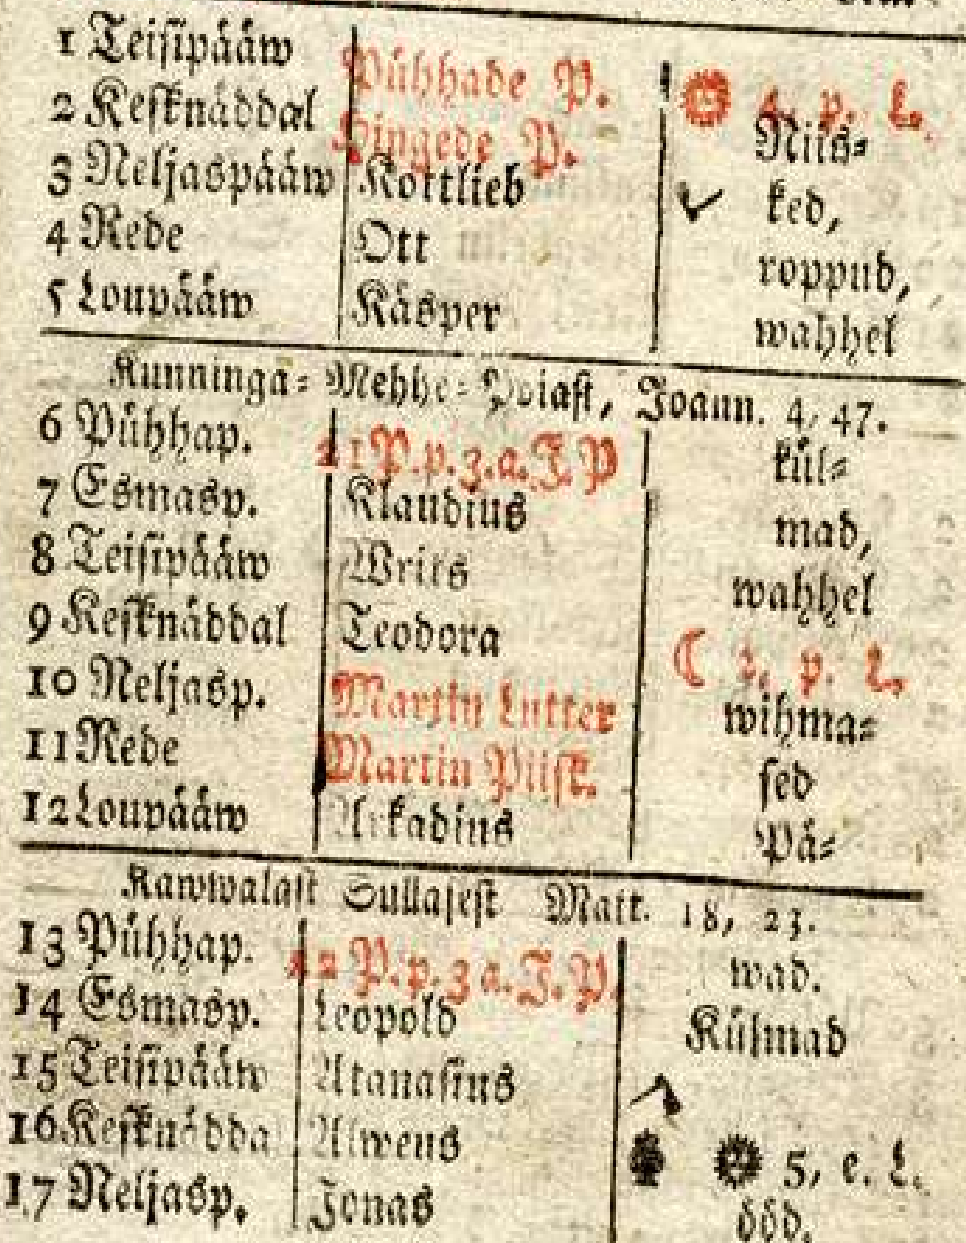 1 Teisipääw Pühhade P. 4. p. L.
2 Kesknäddal Hingede P. Niis-
3 Neljaspääw Kottlieb ked,
4 Rede Ott roppud,
5 Loupääw Käsper wahhel
Kunninga-Mehhe-Poiast, Joann. 4, 47.
6 Pühhap. 21 P. p. 3. a. J. P kül-
7 Esmasp. Klaudius mad,
8 Teisipääw Writs wahhel
9 Kesknäddal Teodora 2. p. L.
10 Neljasp. Martin Lutter wihma-
11 Rede Martin Piisk. sed
12 Loupääw Arkadius Pä-
Kawwalast Sullasest Matt. 18, 23.
13 Pühhap. 22 P. p. 3 a. J. P. wad.
14 Esmasp. Leopold Külmad
15 Teisipääw Atanasius
16 Keskнädda Alwens 5, e. L.
17 Neljasp. Jonas ööd.